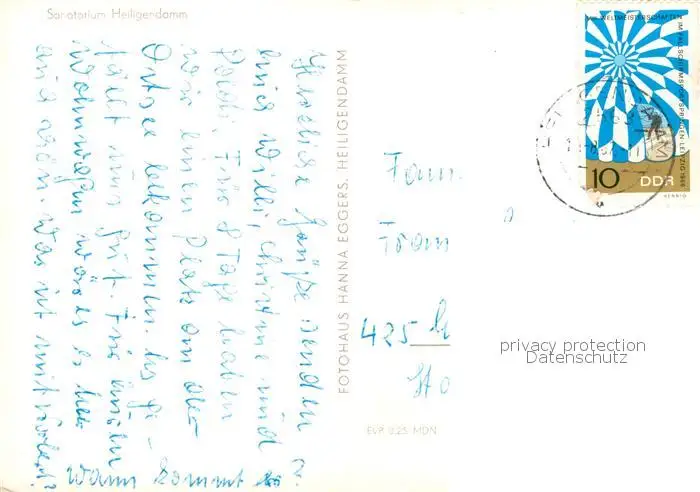 Sanatorium Heiligendamm
Herzliche Grüße senden
Euch Willi, Christine und
Für 8 Tage haben
wir einen Platz an der
Ostsee bekommen. Es ge-
fällt uns gut. Für einen
Wohnwagen wäre es hier
auch schön. Was ist mit
Wann kommt ?
FOTOHAUS HANNA EGGERS, HEILIGENDAMM
Fam.
425
EVP 0.25 MDN
VIII. WELTMEISTERSCHAFTEN IM FALLSCHIRMSPORTSPRINGEN LEIPZIG 1966
10 DDR
HENNIG
privacy protection
Datenschutz